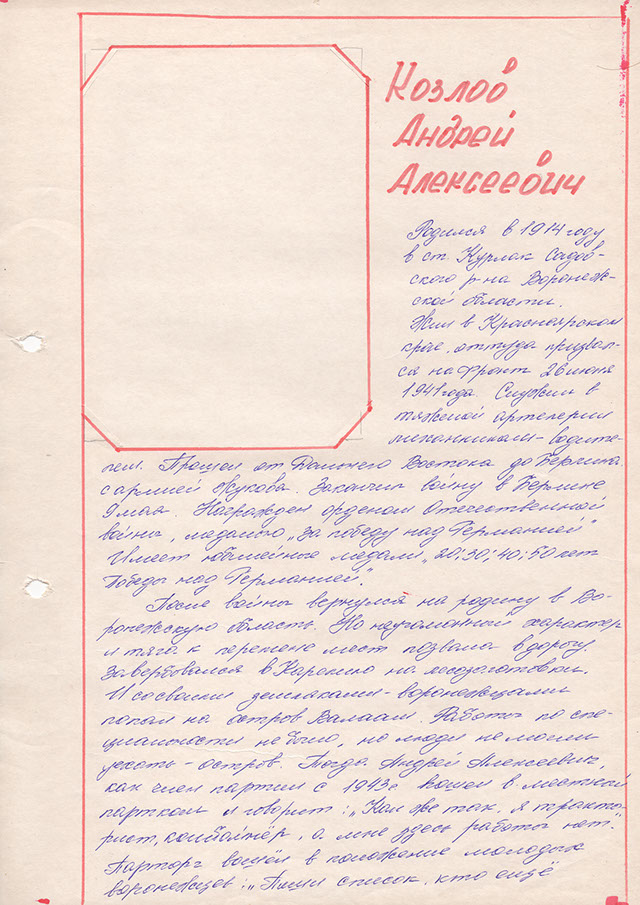 Козлов
Андрей
Алексеевич
Родился в 1914 году
в ст. Курлак Садов-
ского р-на Воронеж-
ской области.
Жил в Красноярском
крае, оттуда призвал-
ся на фронт 26 июня
1941 года. Служил в
тяжелой артелерии
механником-водите-
лем. Прошел от Дальнего Востока до Берлина
с армией Жукова. Закончил войну в Берлине
9 мая. Награжден орденом Отечественной
войны, медалью „За победу над Германией"
Имеет юбилейные медали „20; 30; 40; 50 лет
Победы над Германией".
После войны вернулся на родину в Во-
ронежскую область. Но неугомонный характер
и тяга к перемене мест позвала в дорогу.
Завербовался в Карелию на лесозаготовки.
И со своими земляками-воронежцами
попал на остров Валаам. Работы по спе-
циальности не было, но люди не могли
уехать - остров. Тогда Андрей Алексеевич,
как член партии с 1943 г. пошел в местный
партком и говорит: „Как же так, я тракто-
рист, комбайнёр, а мне здесь работы нет".
Парторг вошёл в положение молодых
воронежцев: „Пиши список, кто ещё